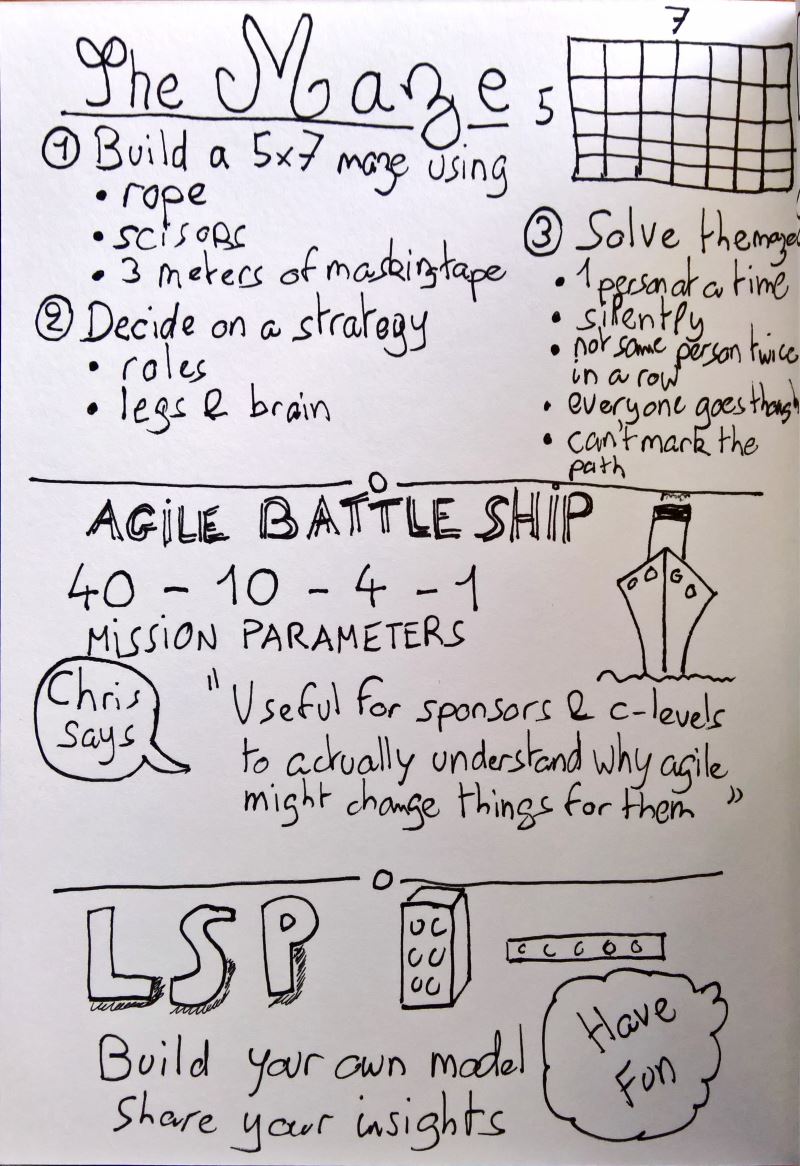 The Maze
7
5
① Build a 5x7 maze using
• rope
• scisors
• 3 meters of masking tape
② Decide on a strategy
• roles
• legs & brain
③ Solve the maze
• 1 person at a time
• silently
• not same person twice
in a row
• everyone goes though
• can't mark the
path
AGILE BATTLE SHIP
40 - 10 - 4 - 1
MISSION PARAMETERS
Chris
says
"Useful for sponsors & c-levels
to actually understand why agile
might change things for them"
LSP
Build your own model
Share your insights
Have
Fun